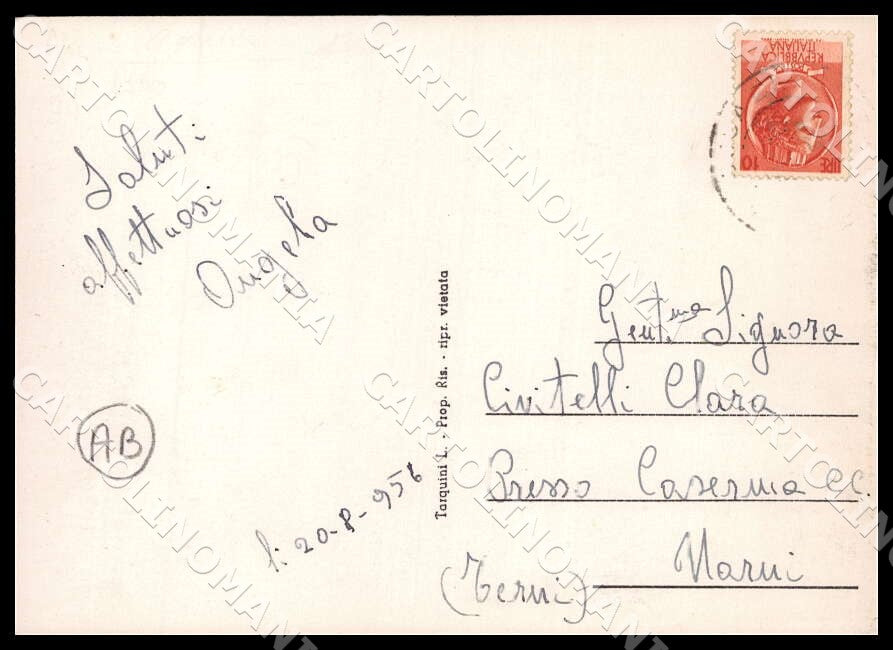 Saluti
affettuosi
Angela
AB
lì 20-8-956
Tarquini L. - Prop. Ris. - ripr. vietata
REPVBBLICA
ITALIANA
LIRE 10
Gent.ma Signora
Civitelli Clara
Presso Caserma CC.
Narni
(Terni)
CARTOLINOMANIA